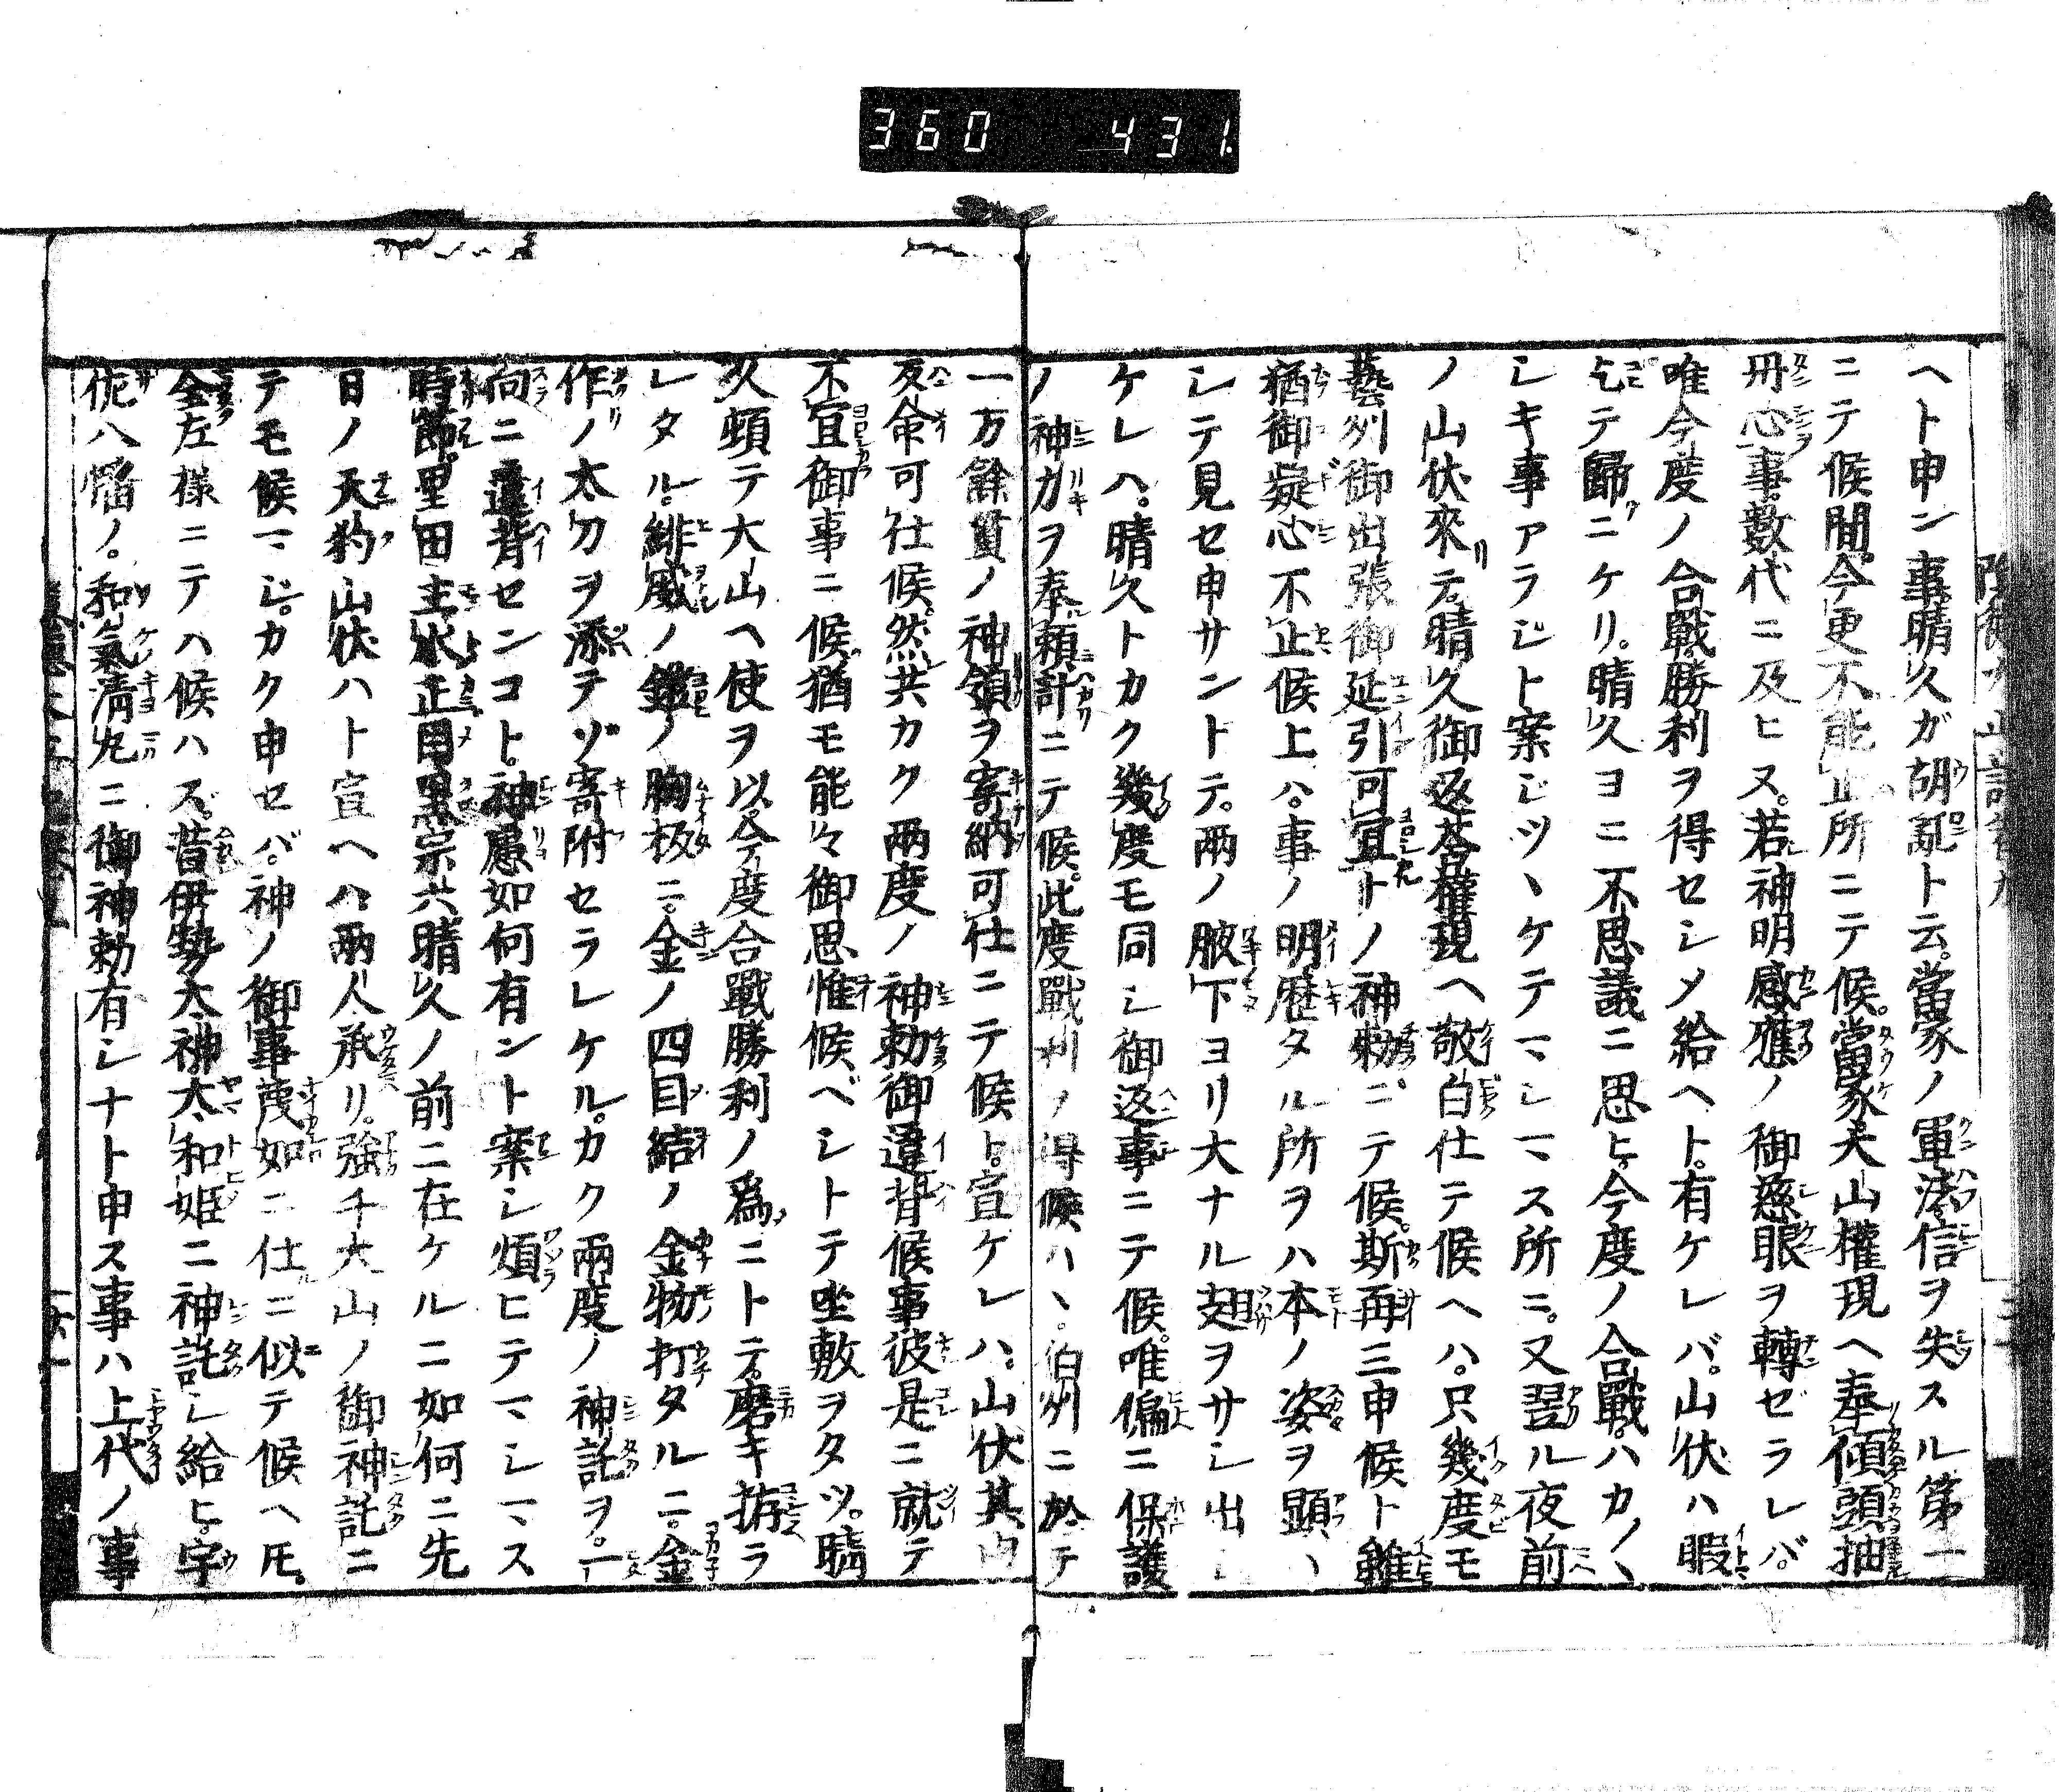 360 431.
ヘト申ン事晴久ガ胡乱ト云當家ノ軍法信ヲ失スル第一
ニテ候間今更不能止所ニテ候當家大山權現ヘ奉傾頭抽
丹心事數代ニ及ヒヌ若神明感應ノ御慈眼ヲ轉ゼラレバ
唯今度ノ合戰勝利ヲ得セシメ給ヘト有ケレバ山伏ハ暇
乞テ歸ニケリ晴久ヨニ不思議ニ思ヒ今度ノ合戰ハカ〳〵
シキ事アラジト案ジツヽケテマシマス所ニ又翌ル夜前
ノ山伏來テ晴久御返荅權現ヘ敬白仕テ候ヘハ只幾度モ
藝州御出張御延引可宜トノ神勅ニテ候斯再三申候ト雖
猶御疑心不止候上ハ事ノ明歴タル所ヲハ本ノ姿ヲ顯ヽ
シテ見セ申サントテ両ノ腋下ヨリ大ナル翅ヲサシ出
ケレハ晴久トカク幾度モ同シ御返事ニテ候唯偏ニ保護
ノ神力ヲ奉頼計ニテ候此度戰利ノ得候ハヽ伯州ニ於テ
一万餘貫ノ神領ヲ寄納可仕ニテ候ト宣ケレハ山伏其
反命可仕候然共カク兩度ノ神勅御違背候事彼是ニ就テ
不宜御事ニ候猶モ能々御思惟候ベシトテ坐敷ヲタツ晴
久頓テ大山ヘ使ヲ以今度合戰勝利ノ爲ニトテ磨キ拵ラ
レタル緋威ノ鎧ノ胸板ニ金ノ四目結ノ金物打タルニ金
作ノ太刀ヲ添テゾ寄附セラレケル カク兩度ノ神託ヲ一
向ニ違背センコト神慮如何有ント案シ煩ヒテマシマス
時節里田主水正目黒宗六晴久ノ前ニ在ケルニ如何ニ先
日ノ天狗山伏ハト宣ヘハ兩人承リ強チ大山ノ御神託ニ
テモ候マジカク申セバ神ノ御事蔑如ニ仕ニ似テ候ヘ𪜈
全左様ニテハ候ハズ昔伊勢大神大和姫ニ神託シ給ヒ宇
佐八幡ノ和氣清丸ニ御神勅有シナト申ス事ハ上代ノ事